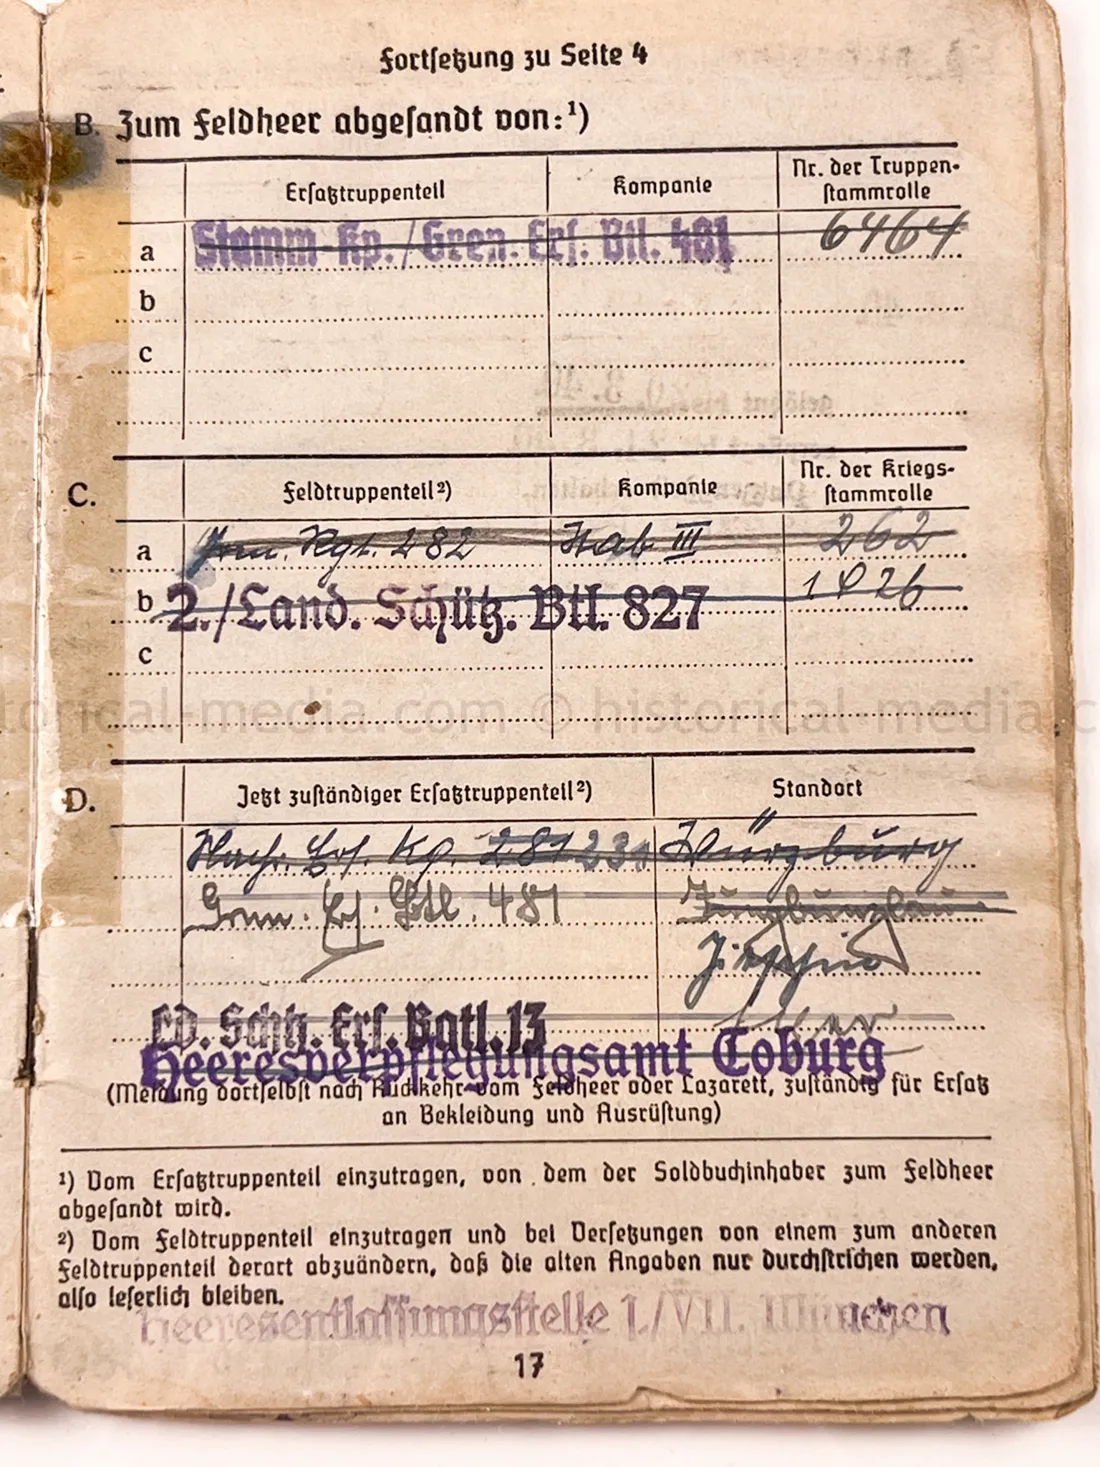 Fortsetzung zu Seite 4
B. Zum Feldheer abgesandt von:¹)
Ersatztruppenteil Kompanie Nr. der Truppen-
stammrolle
a Stamm-Kp./Gren. Ers. Btl. 481 6464
b
c
C. Feldtruppenteil²) Kompanie Nr. der Kriegs-
stammrolle
a Rgt. 282 Stab III 262
b 2./Land. Schütz. Btl. 827
c
D. Jetzt zuständiger Ersatztruppenteil²) Standort
Nachr. Ers. Kp. 281 231 Würzburg
Gren. Ers. Btl. 481 Jungbunzlau
Ld. Schtz. Ers. Batl. 13
Heeresverpflegungsamt Coburg
(Meldung dortselbst nach Rückkehr vom Feldheer oder Lazarett, zuständig für Ersatz
an Bekleidung und Ausrüstung)
¹) Vom Ersatztruppenteil einzutragen, von dem der Soldbuchinhaber zum Feldheer
abgesandt wird.
²) Vom Feldtruppenteil einzutragen und bei Versetzungen von einem zum anderen
Feldtruppenteil derart abzuändern, daß die alten Angaben nur durchstrichen werden,
also leserlich bleiben.
Heeresentlassungsstelle 1./VII. München
17
historical-media.com © historical-media.c